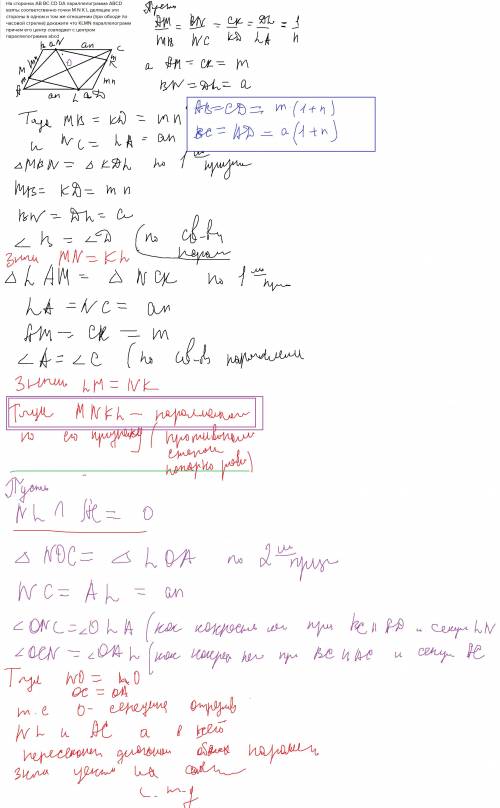 На сторонах AB BC CD DA параллелограмма ABCD
взяты соответственно точки M N K L делящие эти
стороны в одном и том же отношении (при обходе по
часовой стрелке) докажите что KLMN параллелограмм
причем его центр совпадает с центром
параллелограмма abcd
Пусть
AM/MB = BN/NC = CK/KD = DL/LA = 1/n
а AM = CK = m
BN = DL = a
Тогда MB = KD = mn
и NC = LA = an
AB = CD = m(1+n)
BC = AD = a(1+n)
△MBN = △KDL по 1
MB = KD = mn
BN = DL = a
∠B = ∠D (по св-ву
парал
Значит MN = KL
△LAM = △NCK по 1
LA = NC = an
AM = CK = m
∠A = ∠C (по св-ву
Значит LM = NK
Тогда MNKL — параллелограмм
по его признаку (противополож
сторон
попарно равны)
Пусть
NL ∩ AC = O
△NOC = △LOA по 2
NC = AL = an
∠ONC = ∠OLA (как накрест леж при BC ∥ AD и секущ LN
∠OCN = ∠OAL (как накрест леж при BC ∥ AC и секущ AC
Тогда NO = LO
OC = OA
т.е O- середина отрезков
NL и AC а в ней
пересекают диагонали обоих паралл
значит
ч.т.д